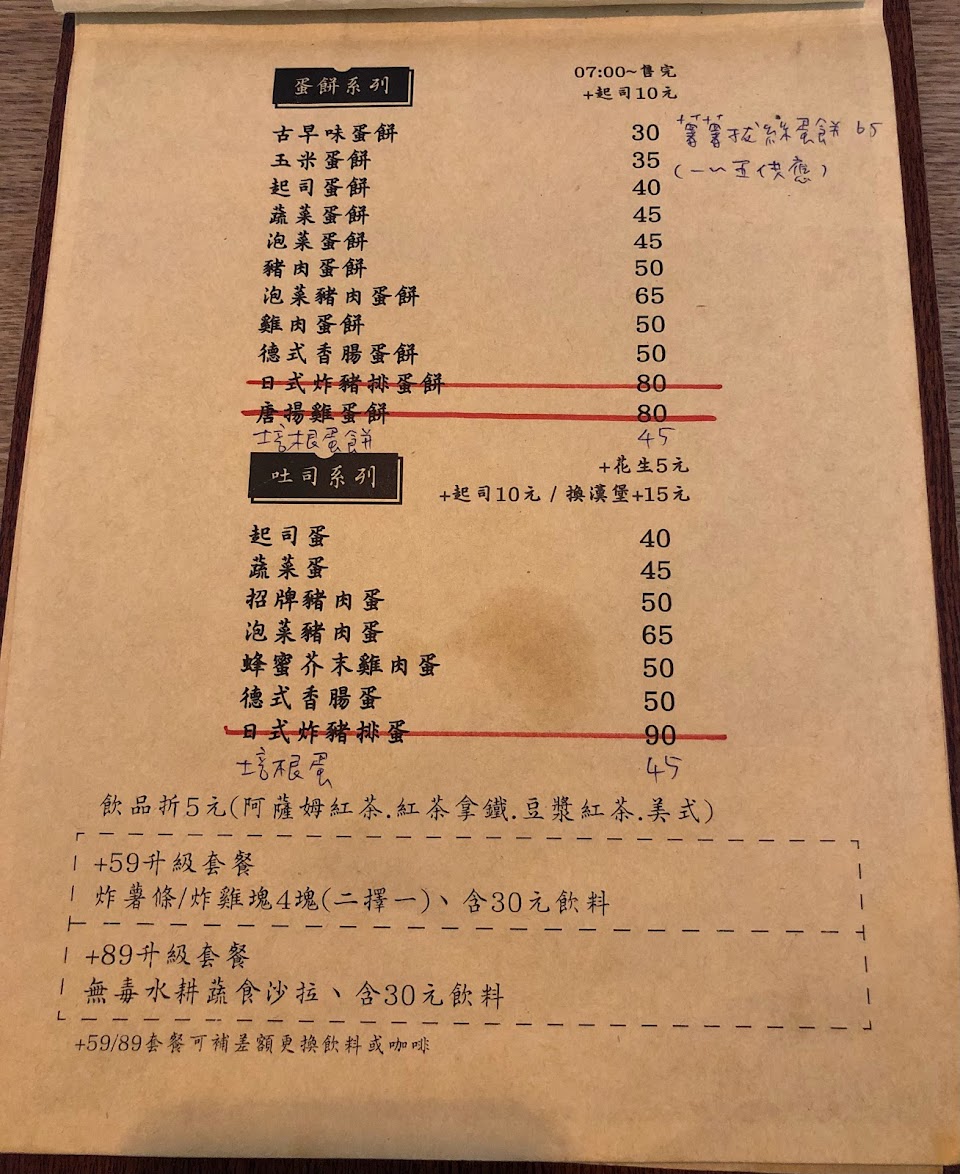 蛋餅系列
07:00~售完
+起司10元
古早味蛋餅 30 薯薯拔絲蛋餅 65
玉米蛋餅 35 (一~五供應)
起司蛋餅 40
蔬菜蛋餅 45
泡菜蛋餅 45
豬肉蛋餅 50
泡菜豬肉蛋餅 65
雞肉蛋餅 50
德式香腸蛋餅 50
日式炸豬排蛋餅 80
唐揚雞蛋餅 80
培根蛋餅 45
吐司系列
+花生5元
+起司10元 / 換漢堡+15元
起司蛋 40
蔬菜蛋 45
招牌豬肉蛋 50
泡菜豬肉蛋 65
蜂蜜芥末雞肉蛋 50
德式香腸蛋 50
日式炸豬排蛋 90
培根蛋 45
飲品折5元(阿薩姆紅茶.紅茶拿鐵.豆漿紅茶.美式)
+59升級套餐
炸薯條/炸雞塊4塊(二擇一)、含30元飲料
+89升級套餐
無毒水耕蔬食沙拉、含30元飲料
+59/89套餐可補差額更換飲料或咖啡